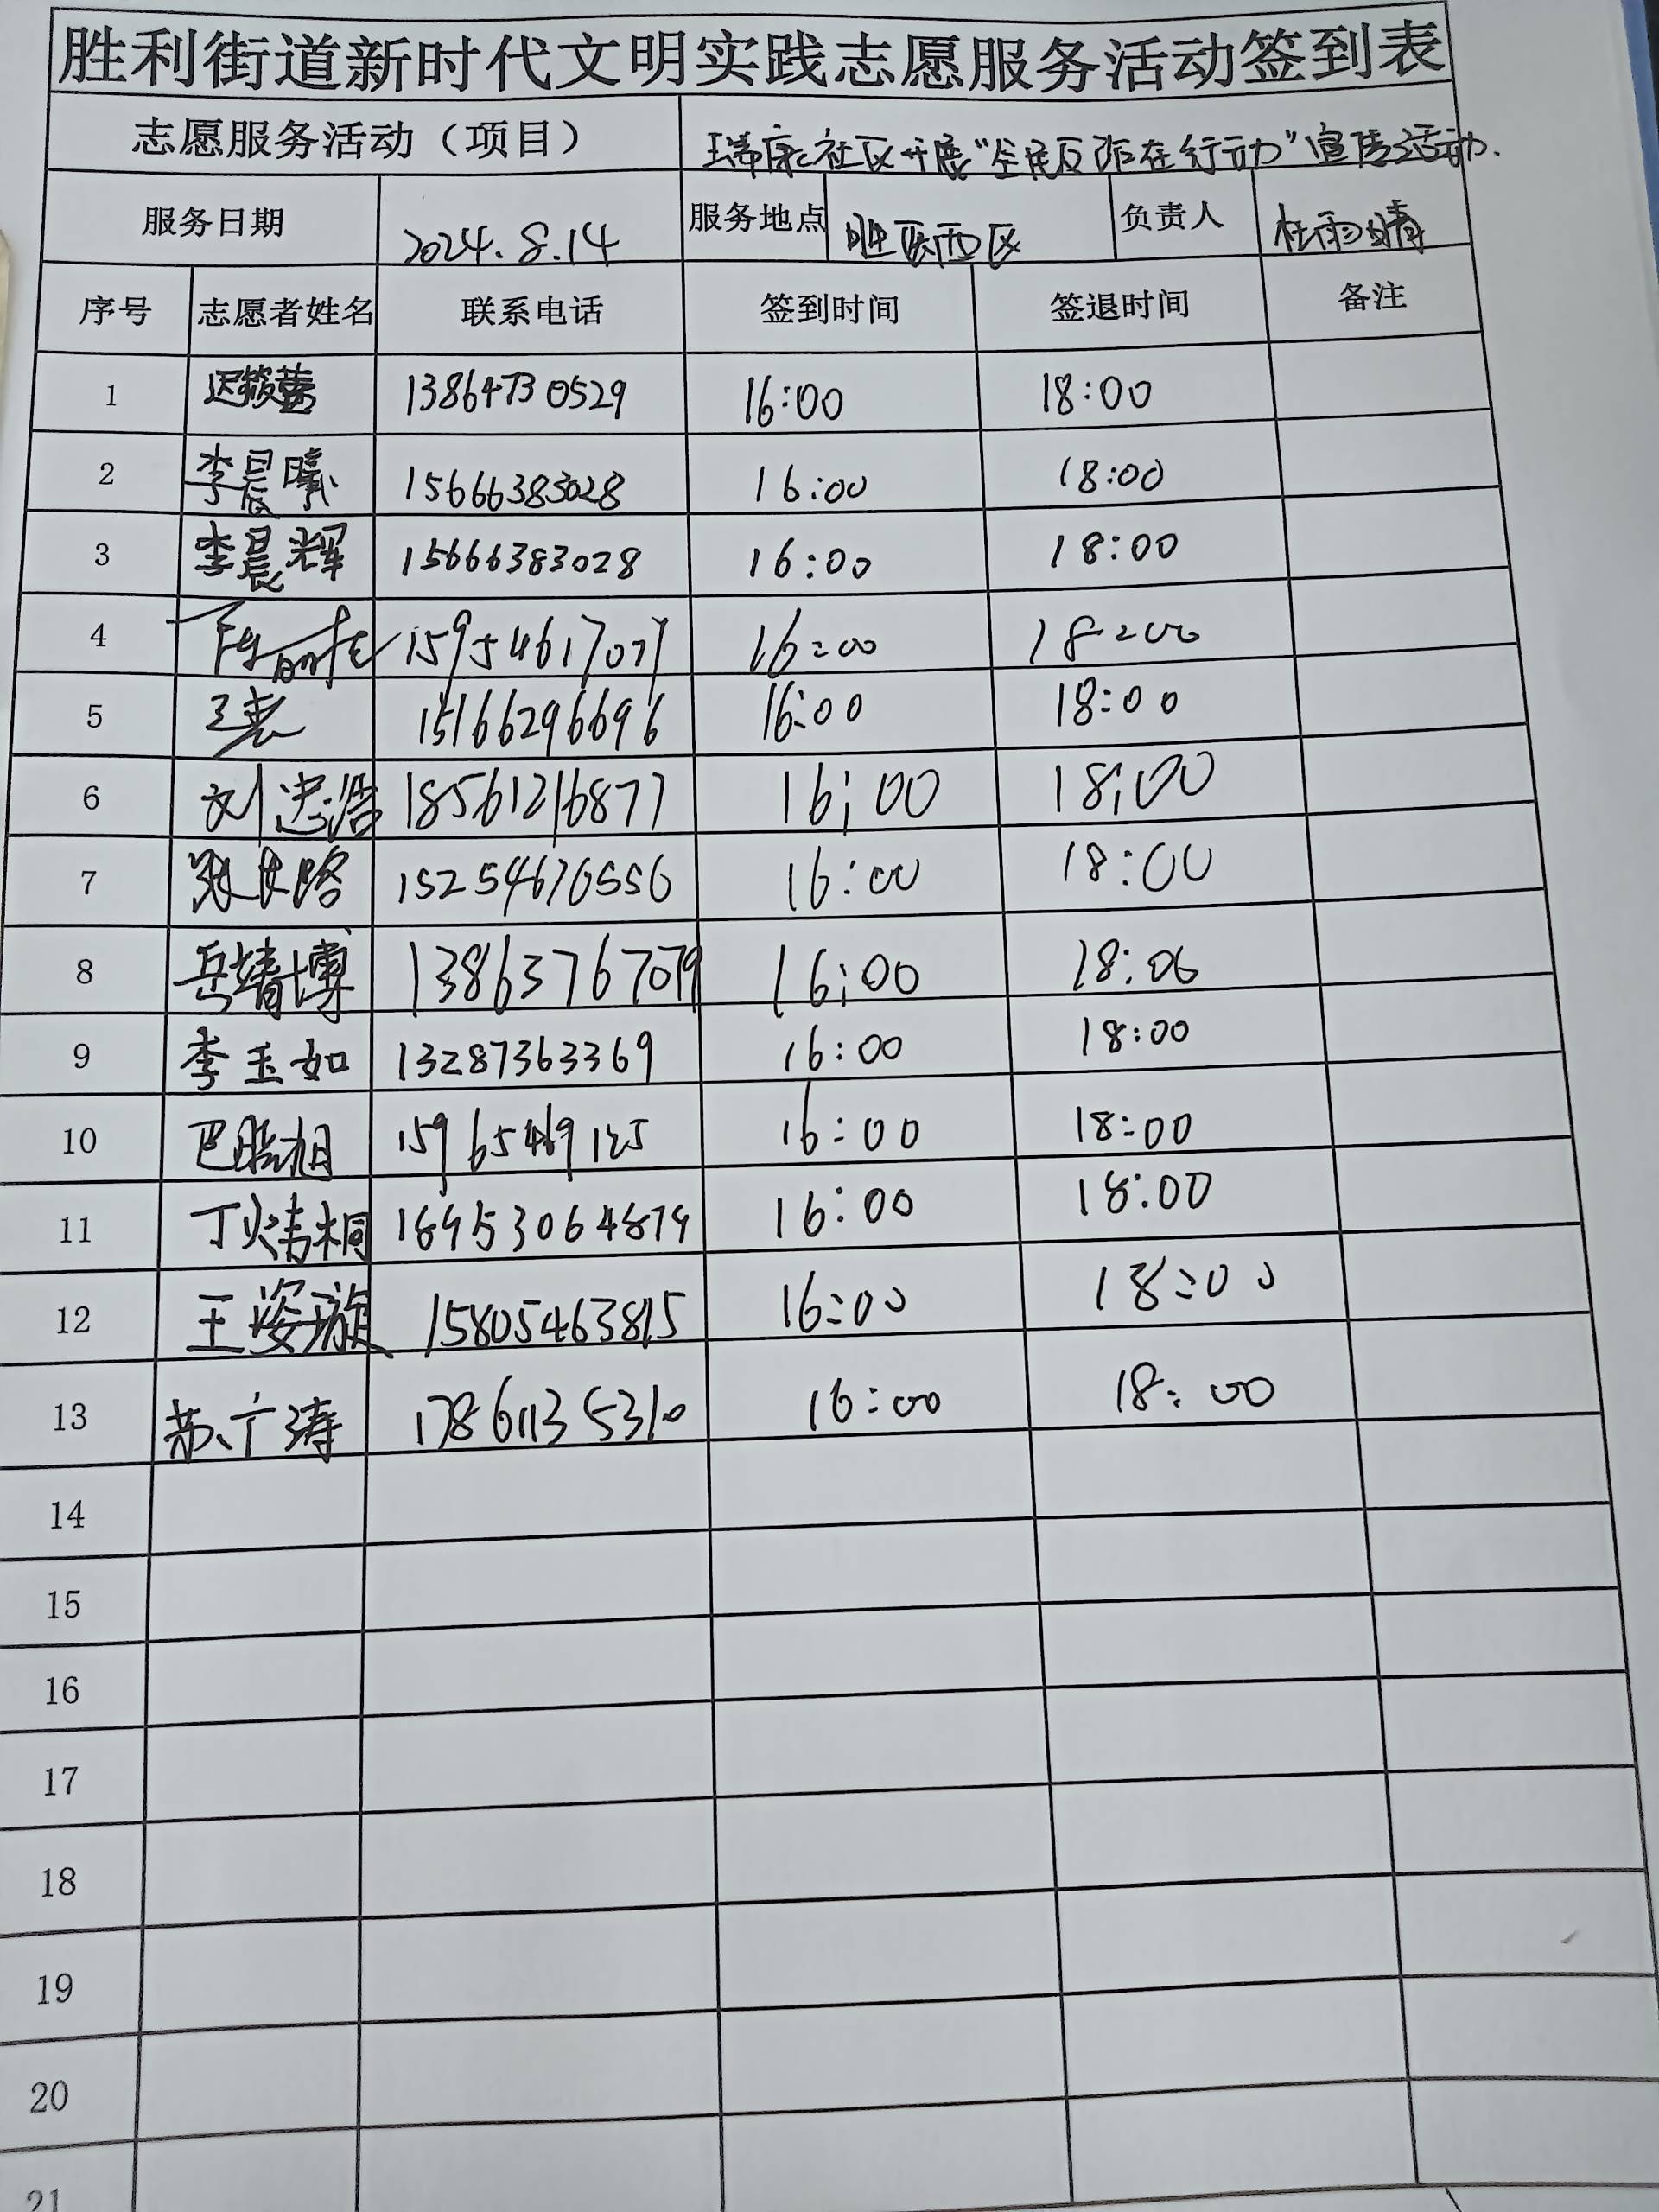 胜利街道新时代文明实践志愿服务活动签到表
志愿服务活动（项目） 瑞康社区开展“全民反诈在行动”宣传活动.
服务日期 2024.8.14 服务地点 胜医西区 负责人 杜雨晴
序号 志愿者姓名 联系电话 签到时间 签退时间 备注
1 迟筱 13864730529 16:00 18:00
2 李晨曦 15666383028 16:00 18:00
3 李晨辉 15666383028 16:00 18:00
4 15954617077 16:00 18:00
5 15166296696 16:00 18:00
6 刘忠浩 18561216877 16:00 18:00
7 路 15254676556 16:00 18:00
8 岳靖博 13863767079 16:00 18:00
9 李玉如 13287363369 16:00 18:00
10 巴 旭 15965469125 16:00 18:00
11 丁炜桐 18953064879 16:00 18:00
12 王姿璇 15805463815 16:00 18:00
13 苏广涛 17861135310 16:00 18:00
14
15
16
17
18
19
20
21